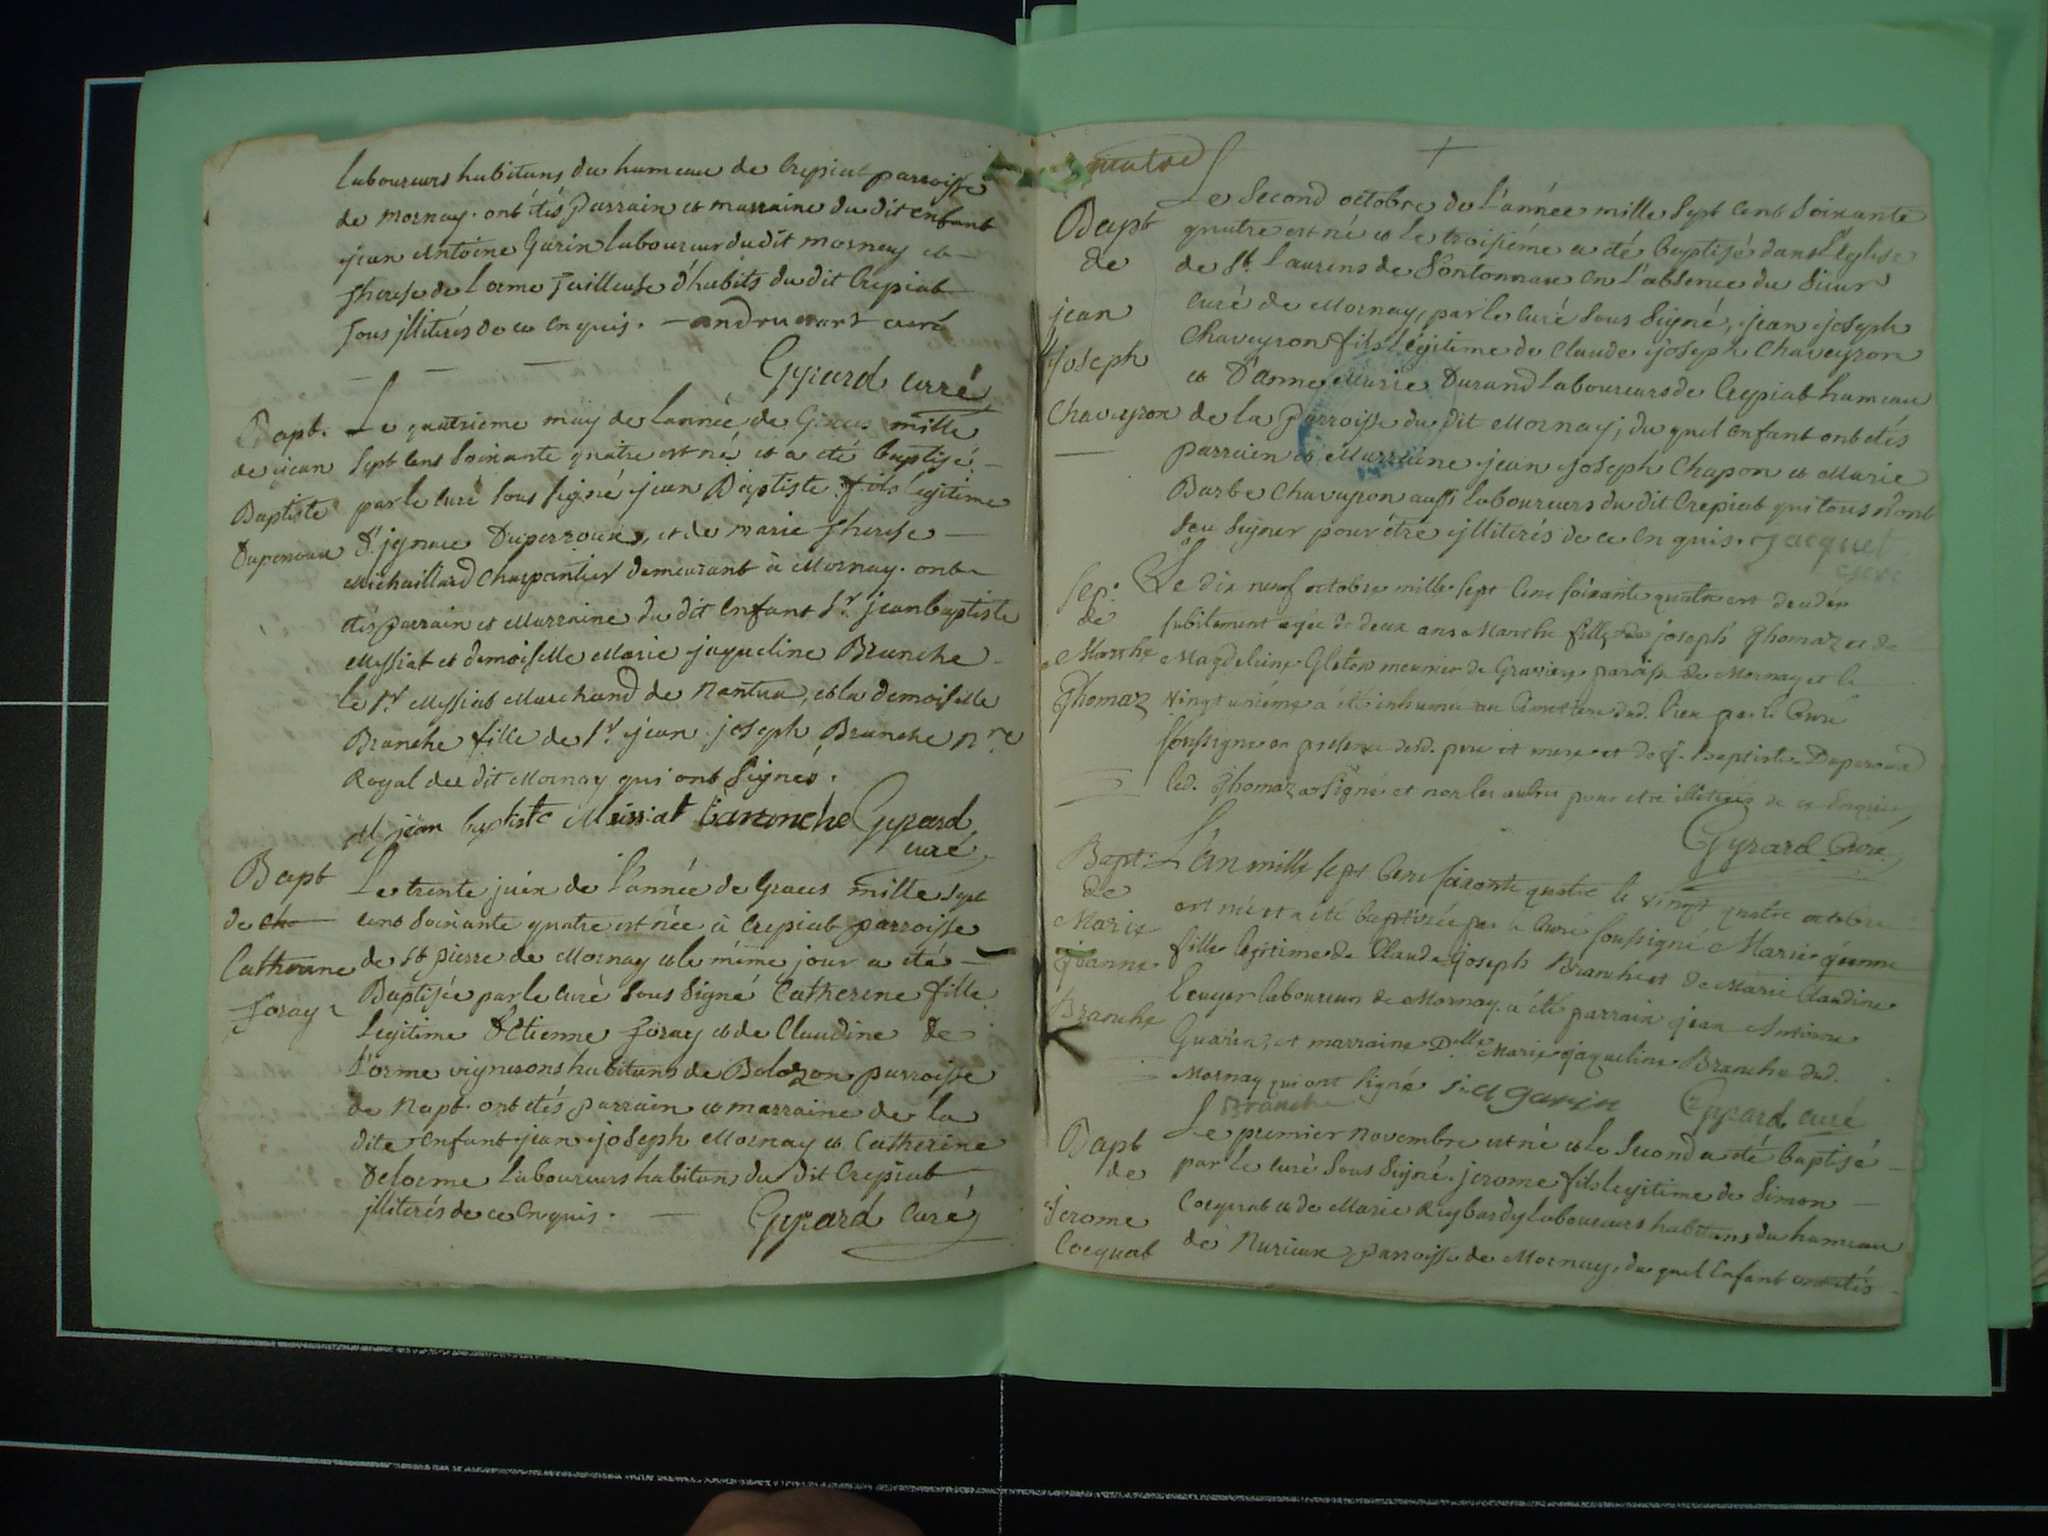 laboureurs habitans du hameau de Crepiat parroisse
de mornay. ont étés parrain et marraine du dit enfant
jean Antoine Garin laboureur du dit mornay et
therese de lorme Tailleuse d'habits du dit Crepiat
tous illiterés de ce enquis. curé
Gyrard curé
Bapt.
de jean
Baptiste
Duperroux
Le quatrieme may de l'année de Grace mille
sept cent soixante quatre est né et a été baptisé
par le curé sous signé jean Baptiste fils legitime
d'ignace Duperroux, et de marie therese
Michaillard Charpentier demeurant à Mornay. ont
étés parrain et Marraine du dit enfant Sr. jean baptiste
Messiat et demoiselle Marie jaqueline Branche
le Sr. Messiat Marchand de Nantua, et la demoiselle
Branche fille de Sr. jean joseph Branche nre.
Royal du dit Mornay qui ont signés.
jean baptiste Messiat Branche Gyrard
curé
Bapt
de
Catherine
foray
Le trente juin de l'année de Grace mille sept
cent soixante quatre est née à Crepiat parroisse
de St pierre de Mornay et le même jour a été
Baptisée par le curé sous signé Catherine fille
legitime d'Etienne foray et de Claudine de
l'orme vignerons habitans de Bolozon parroisse
de Napt. ont étés parrain et marraine de la
dite enfant jean joseph Mornay et Catherine
Delorme laboureurs habitans du dit Crepiat
illiterés de ce enquis. Gyrard Curé
quatre
Bapt
de
jean
joseph
Chaveyron
Le second octobre de l'année mille sept cent soixante
quatre est né et le troisiéme a été baptisé dans l'eglise
de St. Laurens de Sontonnax en l'absence du sieur
curé de Mornay, par le curé sous signé, jean joseph
Chaveyron fils legitime de Claude joseph Chaveyron
et D'anne Marie Durand laboureurs de Crepiat hameau
de la parroisse du dit Mornay, du quel enfant ont étés
parrain et Marraine jean joseph Chapon et Marie
Barbe Chaveyron aussi laboureurs du dit Crepiat qui tous n'ont
sçu signer pour être illiterés de ce enquis. jacquet
curé
Sep.
de
Marthe
Thomaz
Le dix neuf octobre mille sept cent soixante quatre est decedée
subitement agée de deux ans Marthe fille de joseph Thomaz et de
Magdeleine meunier de parroisse de Mornay et le
vingt unième a été inhumée au Cimetiere dud. lieu par le Curé
soussigné en presence desd. pere et mere et de j. baptiste Duperoux
led. Thomaz a signé et non les autres pour etre illiterés de ce enquis
Gyrard Curé
Bapt.
de
Marie
jeanne
Branche
L'an mille sept cent soixante quatre le vingt quatre octobre
est née et a été baptisée par le Curé soussigné Marie jeanne
fille legitime de Claude joseph Branche et de Marie Claudine
laboureurs de Mornay. a été parrain jean Antoine
Guarin, et marraine Dlle. Marie jaqueline Branche dud.
Mornay qui ont signé garin
Branche Gyrard curé
Bapt
de
Jerome
Cocquat
Le premier novembre est né et le second a été baptisé
par le curé sous signé. jerome fils legitime de Simon
Cocquat et de Marie Reybardy laboureurs habitans du hameau
de Nurieux parroisse de Mornay, du quel enfant ont étés